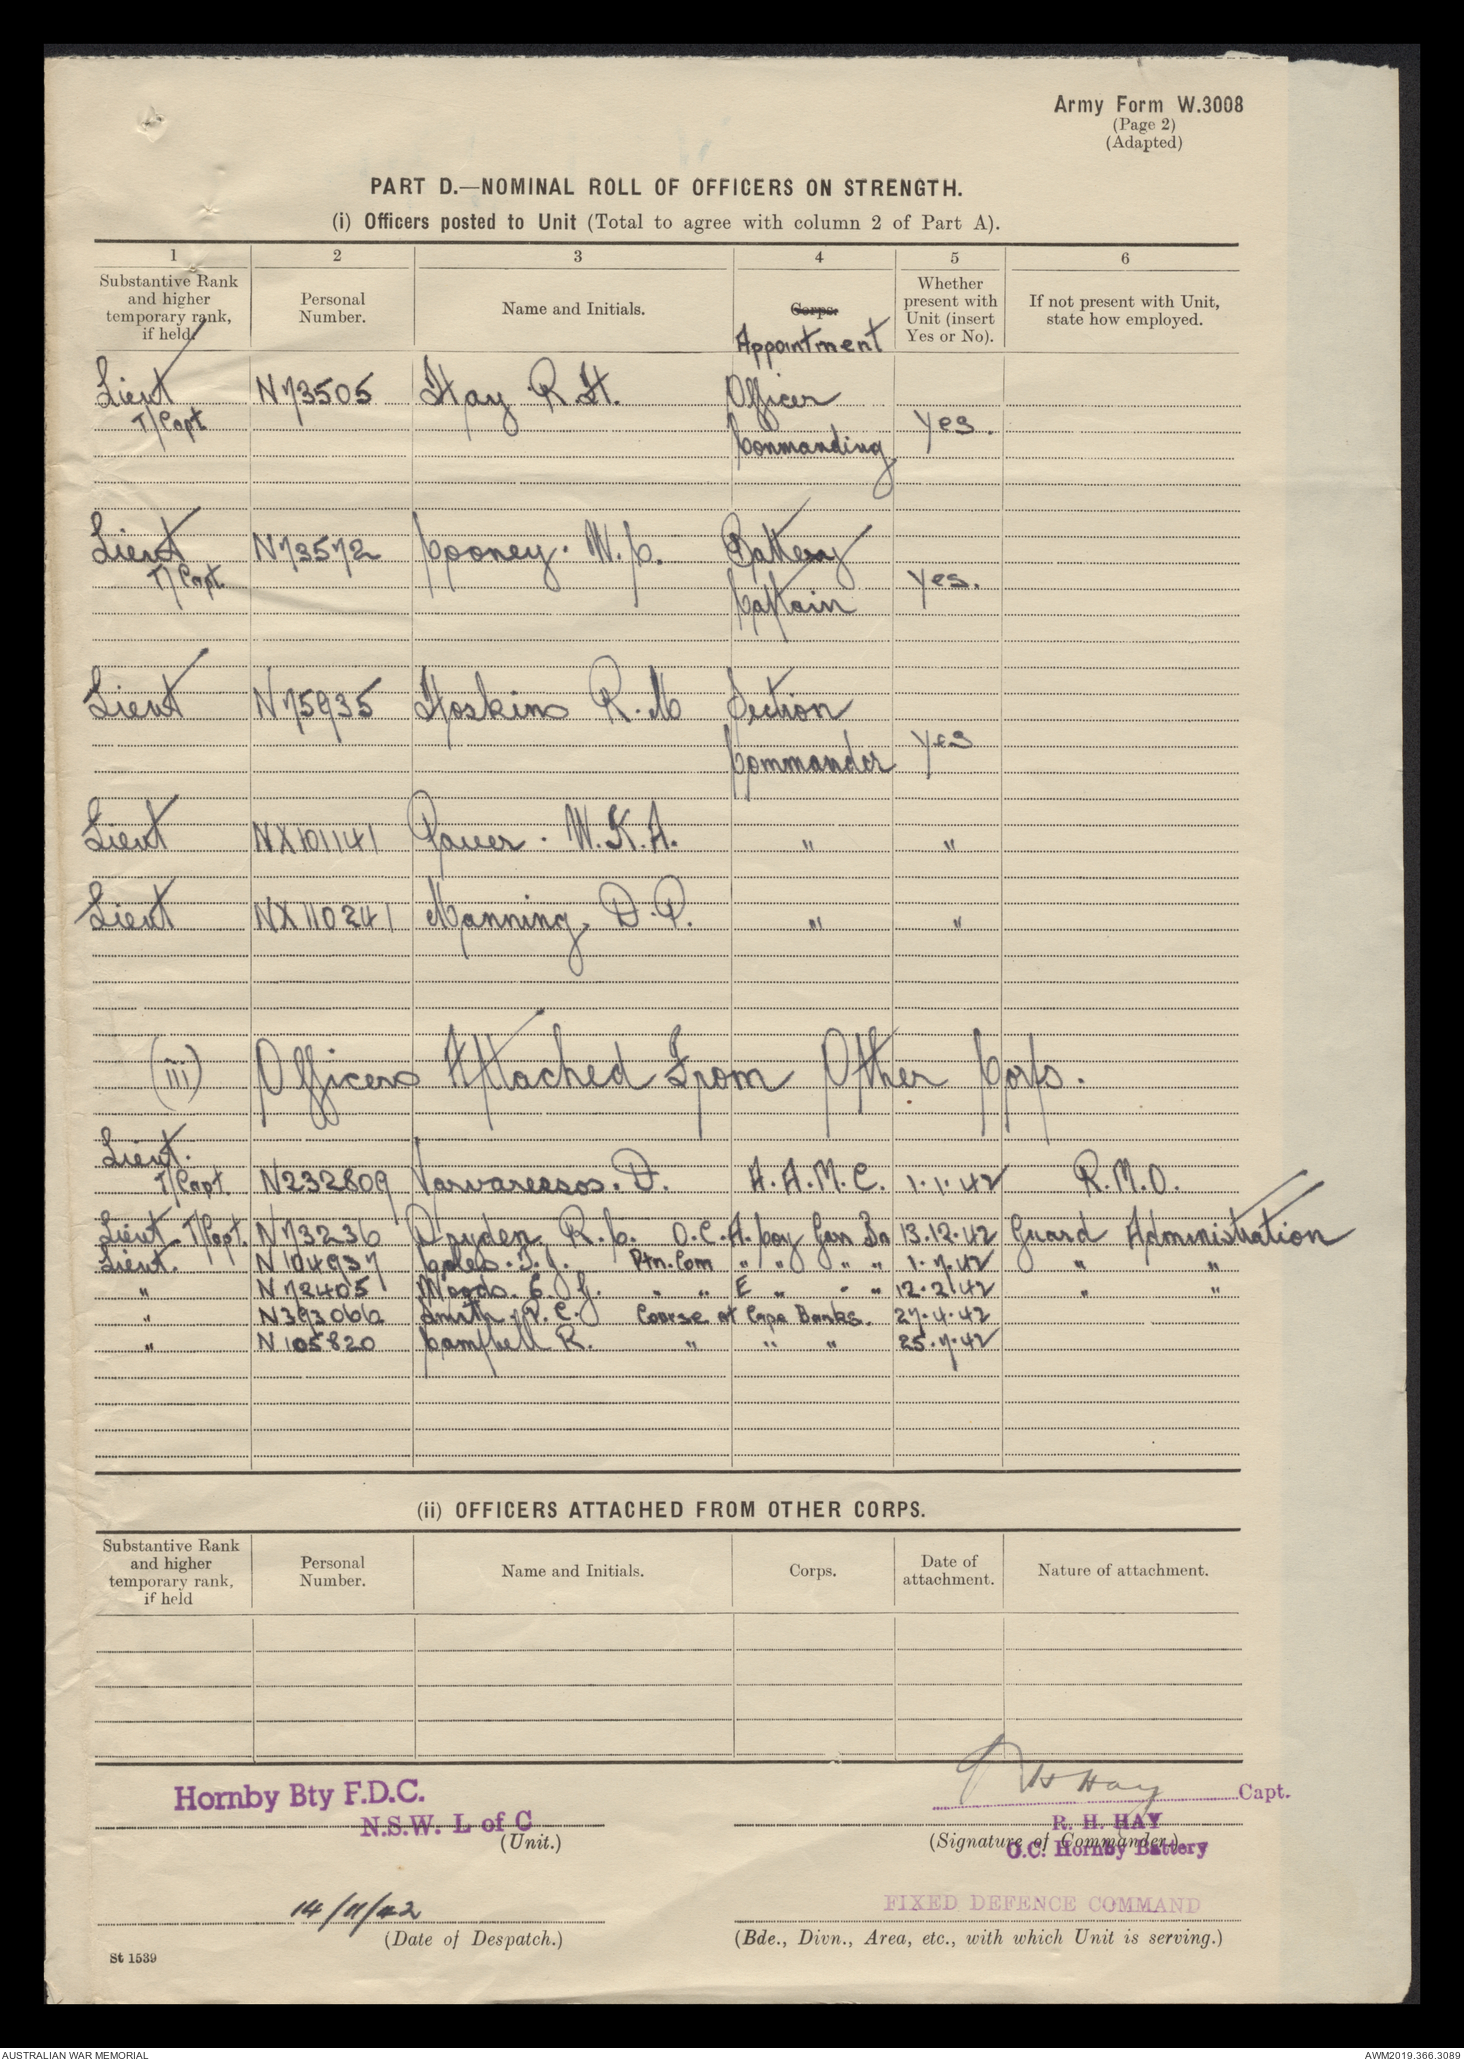 Army Form W.3008
(Page 2)
(Adapted)
PART D.—NOMINAL ROLL OF OFFICERS ON STRENGTH.
(i) Officers posted to Unit (Total to agree with column 2 of Part A).
1 2 3 4 5 6
Substantive Rank and higher temporary rank, if held. Personal Number. Name and Initials. Corps. Appointment Whether present with Unit (insert Yes or No). If not present with Unit, state how employed.
Lieut N73505 Hay R.H. Officer
T/Capt. Commanding Yes.
Lieut N73572 Cooney. W.C. Battery
T/Capt. Captain Yes.
Lieut N75935 Hoskins R.M Section
Commander Yes
Lieut NX101141 W.K.A. " "
Lieut NX110241 Manning, D.P. " "
(iii) Officers Attached From Other Corps.
Lieut.
T/Capt. N232809 Varvaressos. D. A.A.M.C. 1.1.42 R.M.O.
Lieut T/Capt. N73236 Dryden R.C. O.C. A. Coy Gar Bn 13.12.42 Guard Administration
Lieut. N104937 Coles. T.J. Ptn. Com " " " " 1.7.42 " "
" N72405 Woods. E.J. " " E " " 12.2.42 " "
" N393066 Smith, P.C. Course at Cape Banks. 27.4.42
" N105820 Campbell R. " " " 25.7.42
(ii) OFFICERS ATTACHED FROM OTHER CORPS.
Substantive Rank and higher temporary rank, if held Personal Number. Name and Initials. Corps. Date of attachment. Nature of attachment.
Hornby Bty F.D.C.
N.S.W. L of C
(Unit.)
R H Hay Capt.
R. H. HAY
(Signature of Commander.)
O.C. Hornby Battery
14/11/42
(Date of Despatch.)
FIXED DEFENCE COMMAND
(Bde., Divn., Area, etc., with which Unit is serving.)
St 1539
AUSTRALIAN WAR MEMORIAL
AWM2019.366.3089